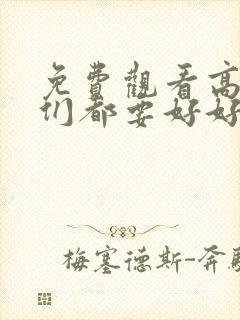 免費觀看高
们都要好好
梅塞德斯-奔馳